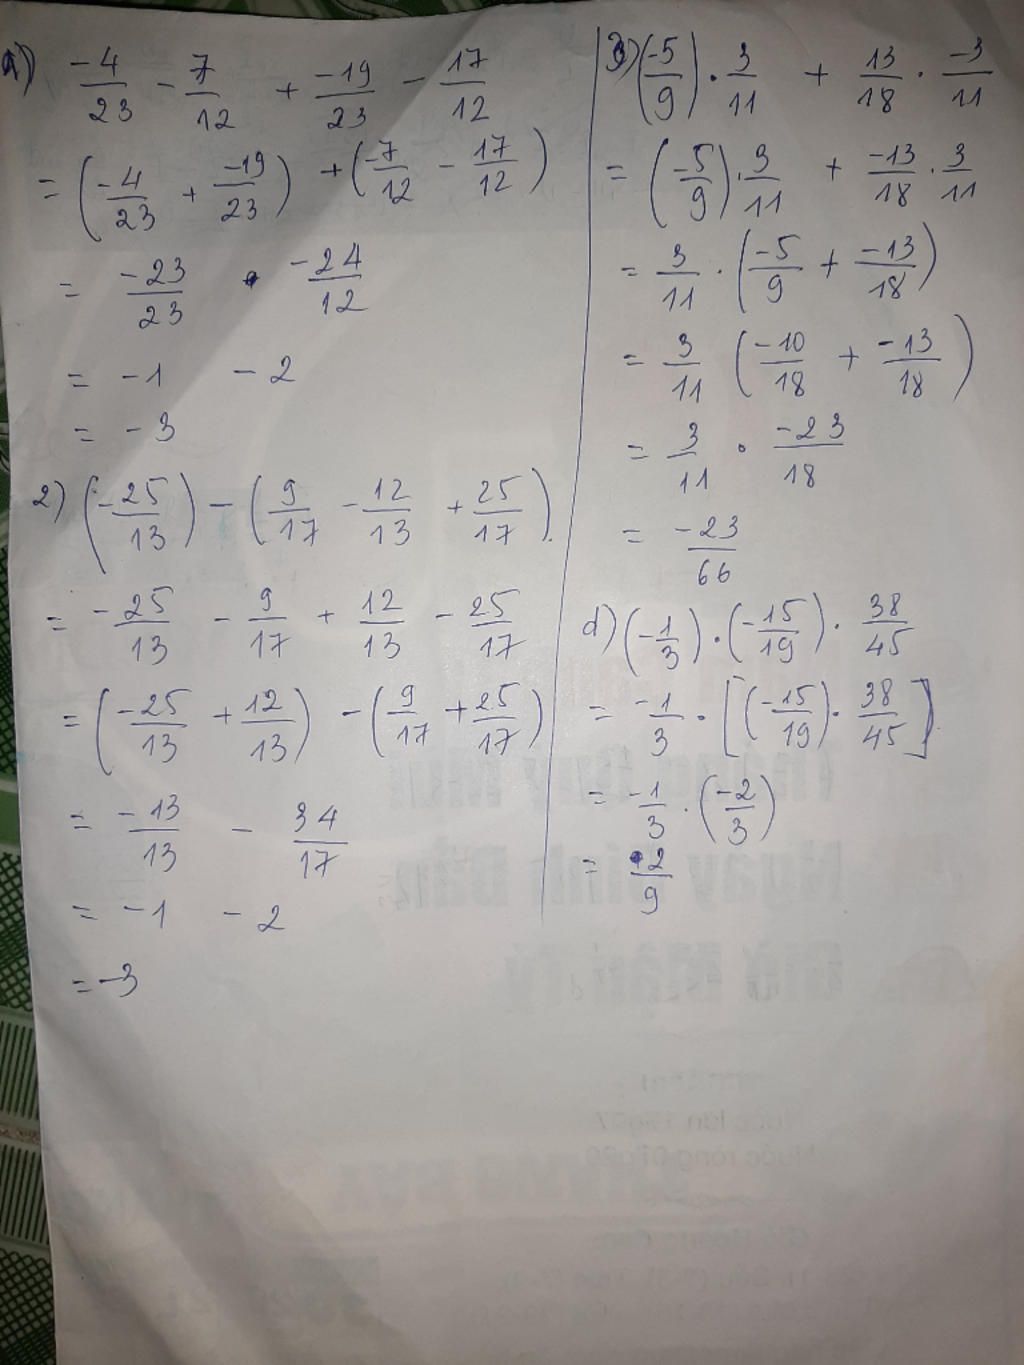 a) -4/23 - 7/12 + -19/23 - 17/12
= (-4/23 + -19/23) + (-7/12 - 17/12)
= -23/23 -24/12
= -1 - 2
= -3
2) (-25/13) - (9/17 - 12/13 + 25/17).
= -25/13 - 9/17 + 12/13 - 25/17
= (-25/13 + 12/13) - (9/17 + 25/17)
= -13/13 - 34/17
= -1 - 2
= -3
3) (-5/9) . 3/11 + 13/18 . -3/11
= (-5/9) . 3/11 + -13/18 . 3/11
= 3/11 . (-5/9 + -13/18)
= 3/11 (-10/18 + -13/18)
= 3/11 . -23/18
= -23/66
d) (-1/3) . (-15/19) . 38/45
= -1/3 . [(-15/19) . 38/45]
= -1/3 . (-2/3)
= 2/9